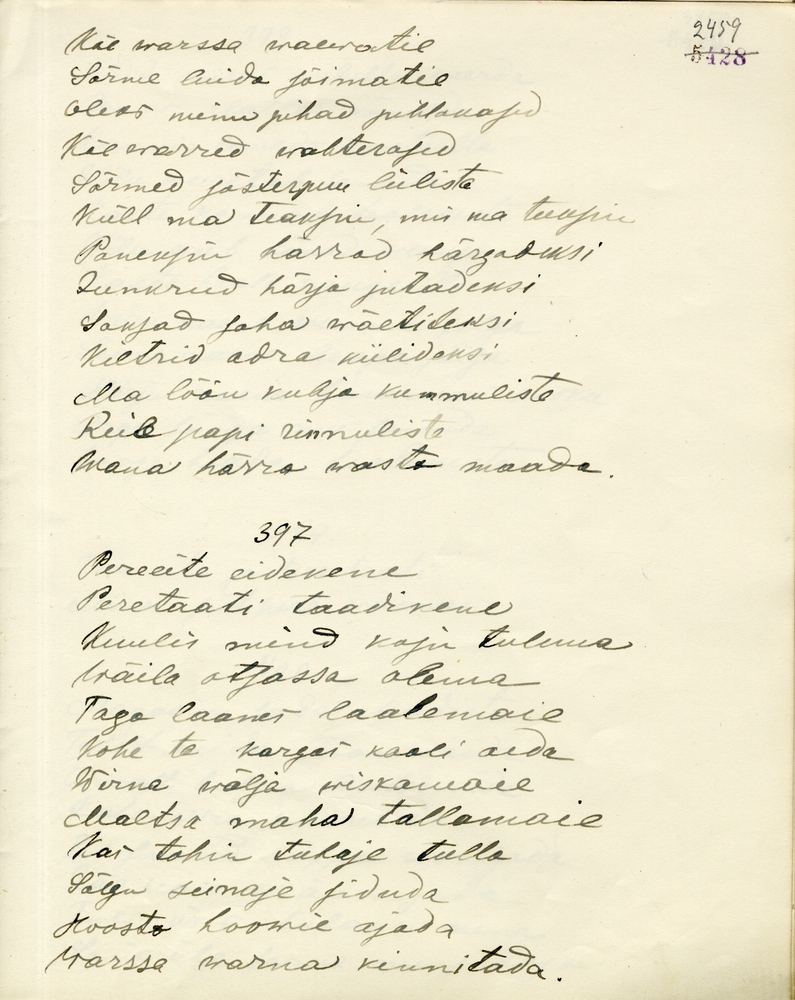 2459
5428
Käe warssa waewatie
Sõrme luida jõimatie
Oleks minu pihad pihlakased
Käe warred wahterased
Sõrmed jästerpuu lüliste
Küll ma teaksin, mis ma teeksin
Paneksin härrad härgadeksi
Junkrud härja jutadeksi
Saksad saha wäetiteksi
Kiltrid adra kiilideksi
Ma löön kubja kummuliste
Keik papi rinnuliste
Wana härra wasta maada.
397
Pereeite eidekene
Peretaati taadikene
Kuulis mind koju tulema
Wäila otsassa olema
Taga laanes laalemaie
Kohe te kargas kaali aeda
Wirna wälja wiskamaie
Maltsa maha tallamaie
Kas tohin tuhaje tulla
Sõlgu seinaje siduda
Hoosta hoowie ajada
Warssa warna kinnitada.